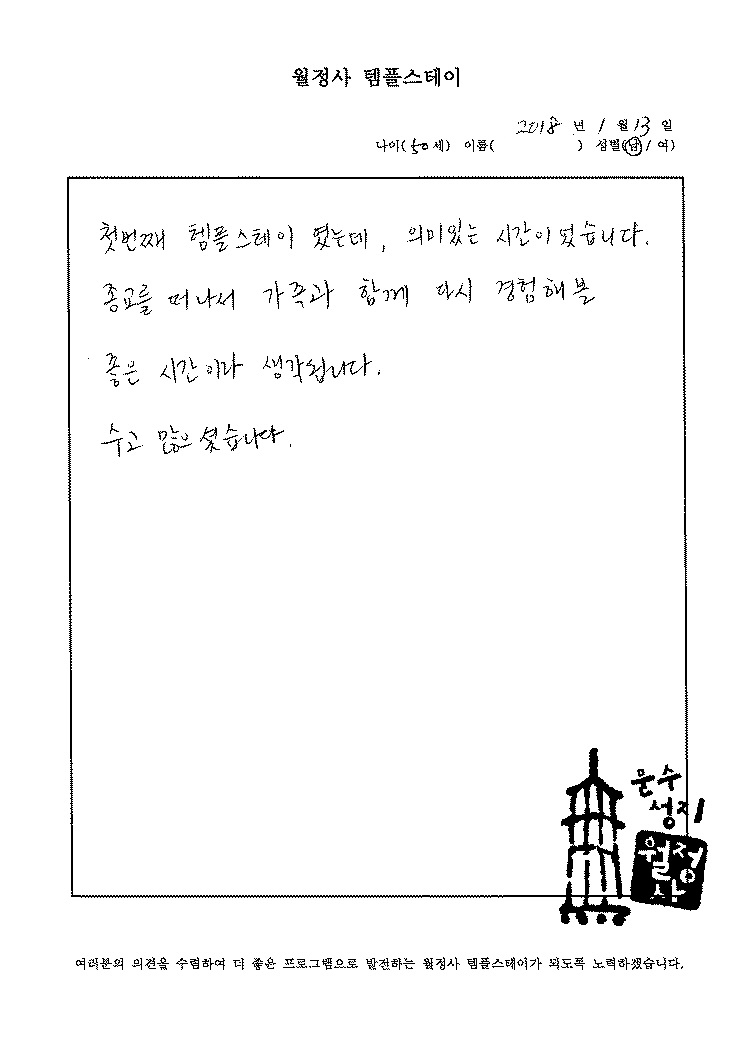 월정사 템플스테이
2018 년 1 월 13 일
나이(50세) 이름( )성별(남/여)
첫번째 템플스테이 였는데, 의미있는 시간이 었습니다.
종교를 떠나서 가족과 함께 다시 경험해볼
좋은 시간이라 생각됩니다.
수고 많으셨습니다.
문수
성지
월정
사
여러분의 의견을 수렴하여 더 좋은 프로그램으로 발전하는 월정사 템플스테이가 되도록 노력하겠습니다.